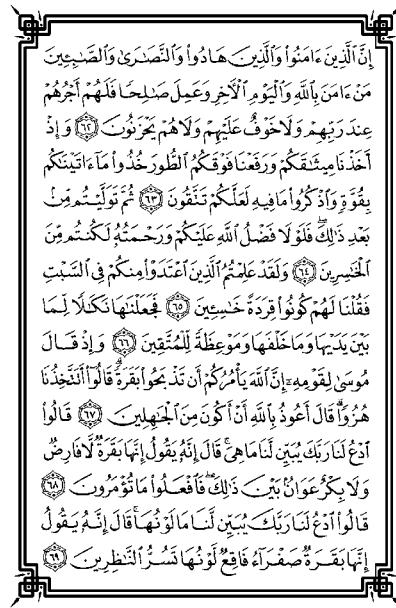 إِنَّ ٱلَّذِينَ ءَامَنُوا۟ وَٱلَّذِينَ هَادُوا۟ وَٱلنَّصَٰرَىٰ وَٱلصَّٰبِـِٔينَ
مَنْ ءَامَنَ بِٱللَّهِ وَٱلْيَوْمِ ٱلْـَٔاخِرِ وَعَمِلَ صَٰلِحًا فَلَهُمْ أَجْرُهُمْ
عِندَ رَبِّهِمْ وَلَا خَوْفٌ عَلَيْهِمْ وَلَا هُمْ يَحْزَنُونَ ٦٢ وَإِذْ
أَخَذْنَا مِيثَٰقَكُمْ وَرَفَعْنَا فَوْقَكُمُ ٱلطُّورَ خُذُوا۟ مَآ ءَاتَيْنَٰكُم
بِقُوَّةٍ وَٱذْكُرُوا۟ مَا فِيهِ لَعَلَّكُمْ تَتَّقُونَ ٦٣ ثُمَّ تَوَلَّيْتُم مِّنۢ
بَعْدِ ذَٰلِكَ ۖ فَلَوْلَا فَضْلُ ٱللَّهِ عَلَيْكُمْ وَرَحْمَتُهُۥ لَكُنتُم مِّنَ
ٱلْخَٰسِرِينَ ٦٤ وَلَقَدْ عَلِمْتُمُ ٱلَّذِينَ ٱعْتَدَوْا۟ مِنكُمْ فِى ٱلسَّبْتِ
فَقُلْنَا لَهُمْ كُونُوا۟ قِرَدَةً خَٰسِـِٔينَ ٦٥ فَجَعَلْنَٰهَا نَكَٰلًا لِّمَا
بَيْنَ يَدَيْهَا وَمَا خَلْفَهَا وَمَوْعِظَةً لِّلْمُتَّقِينَ ٦٦ وَإِذْ قَالَ
مُوسَىٰ لِقَوْمِهِۦٓ إِنَّ ٱللَّهَ يَأْمُرُكُمْ أَن تَذْبَحُوا۟ بَقَرَةً ۖ قَالُوٓا۟ أَتَتَّخِذُنَا
هُزُوًا ۖ قَالَ أَعُوذُ بِٱللَّهِ أَنْ أَكُونَ مِنَ ٱلْجَٰهِلِينَ ٦٧ قَالُوا۟
ٱدْعُ لَنَا رَبَّكَ يُبَيِّن لَّنَا مَا هِىَ ۚ قَالَ إِنَّهُۥ يَقُولُ إِنَّهَا بَقَرَةٌ لَّا فَارِضٌ
وَلَا بِكْرٌ عَوَانٌۢ بَيْنَ ذَٰلِكَ ۖ فَٱفْعَلُوا۟ مَا تُؤْمَرُونَ ٦٨
قَالُوا۟ ٱدْعُ لَنَا رَبَّكَ يُبَيِّن لَّنَا مَا لَوْنُهَا ۚ قَالَ إِنَّهُۥ يَقُولُ
إِنَّهَا بَقَرَةٌ صَفْرَآءُ فَاقِعٌ لَّوْنُهَا تَسُرُّ ٱلنَّٰظِرِينَ ٦٩